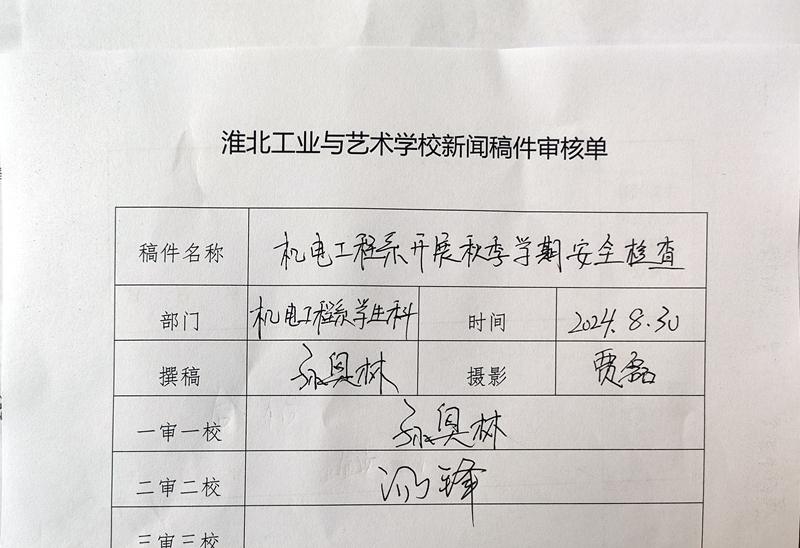 淮北工业与艺术学校新闻稿件审核单
稿件名称 机电工程系开展秋季学期安全检查
部门 机电工程系学生科 时间 2024.8.30
撰稿 摄影 贾磊
一审一校
二审二校
三审三校